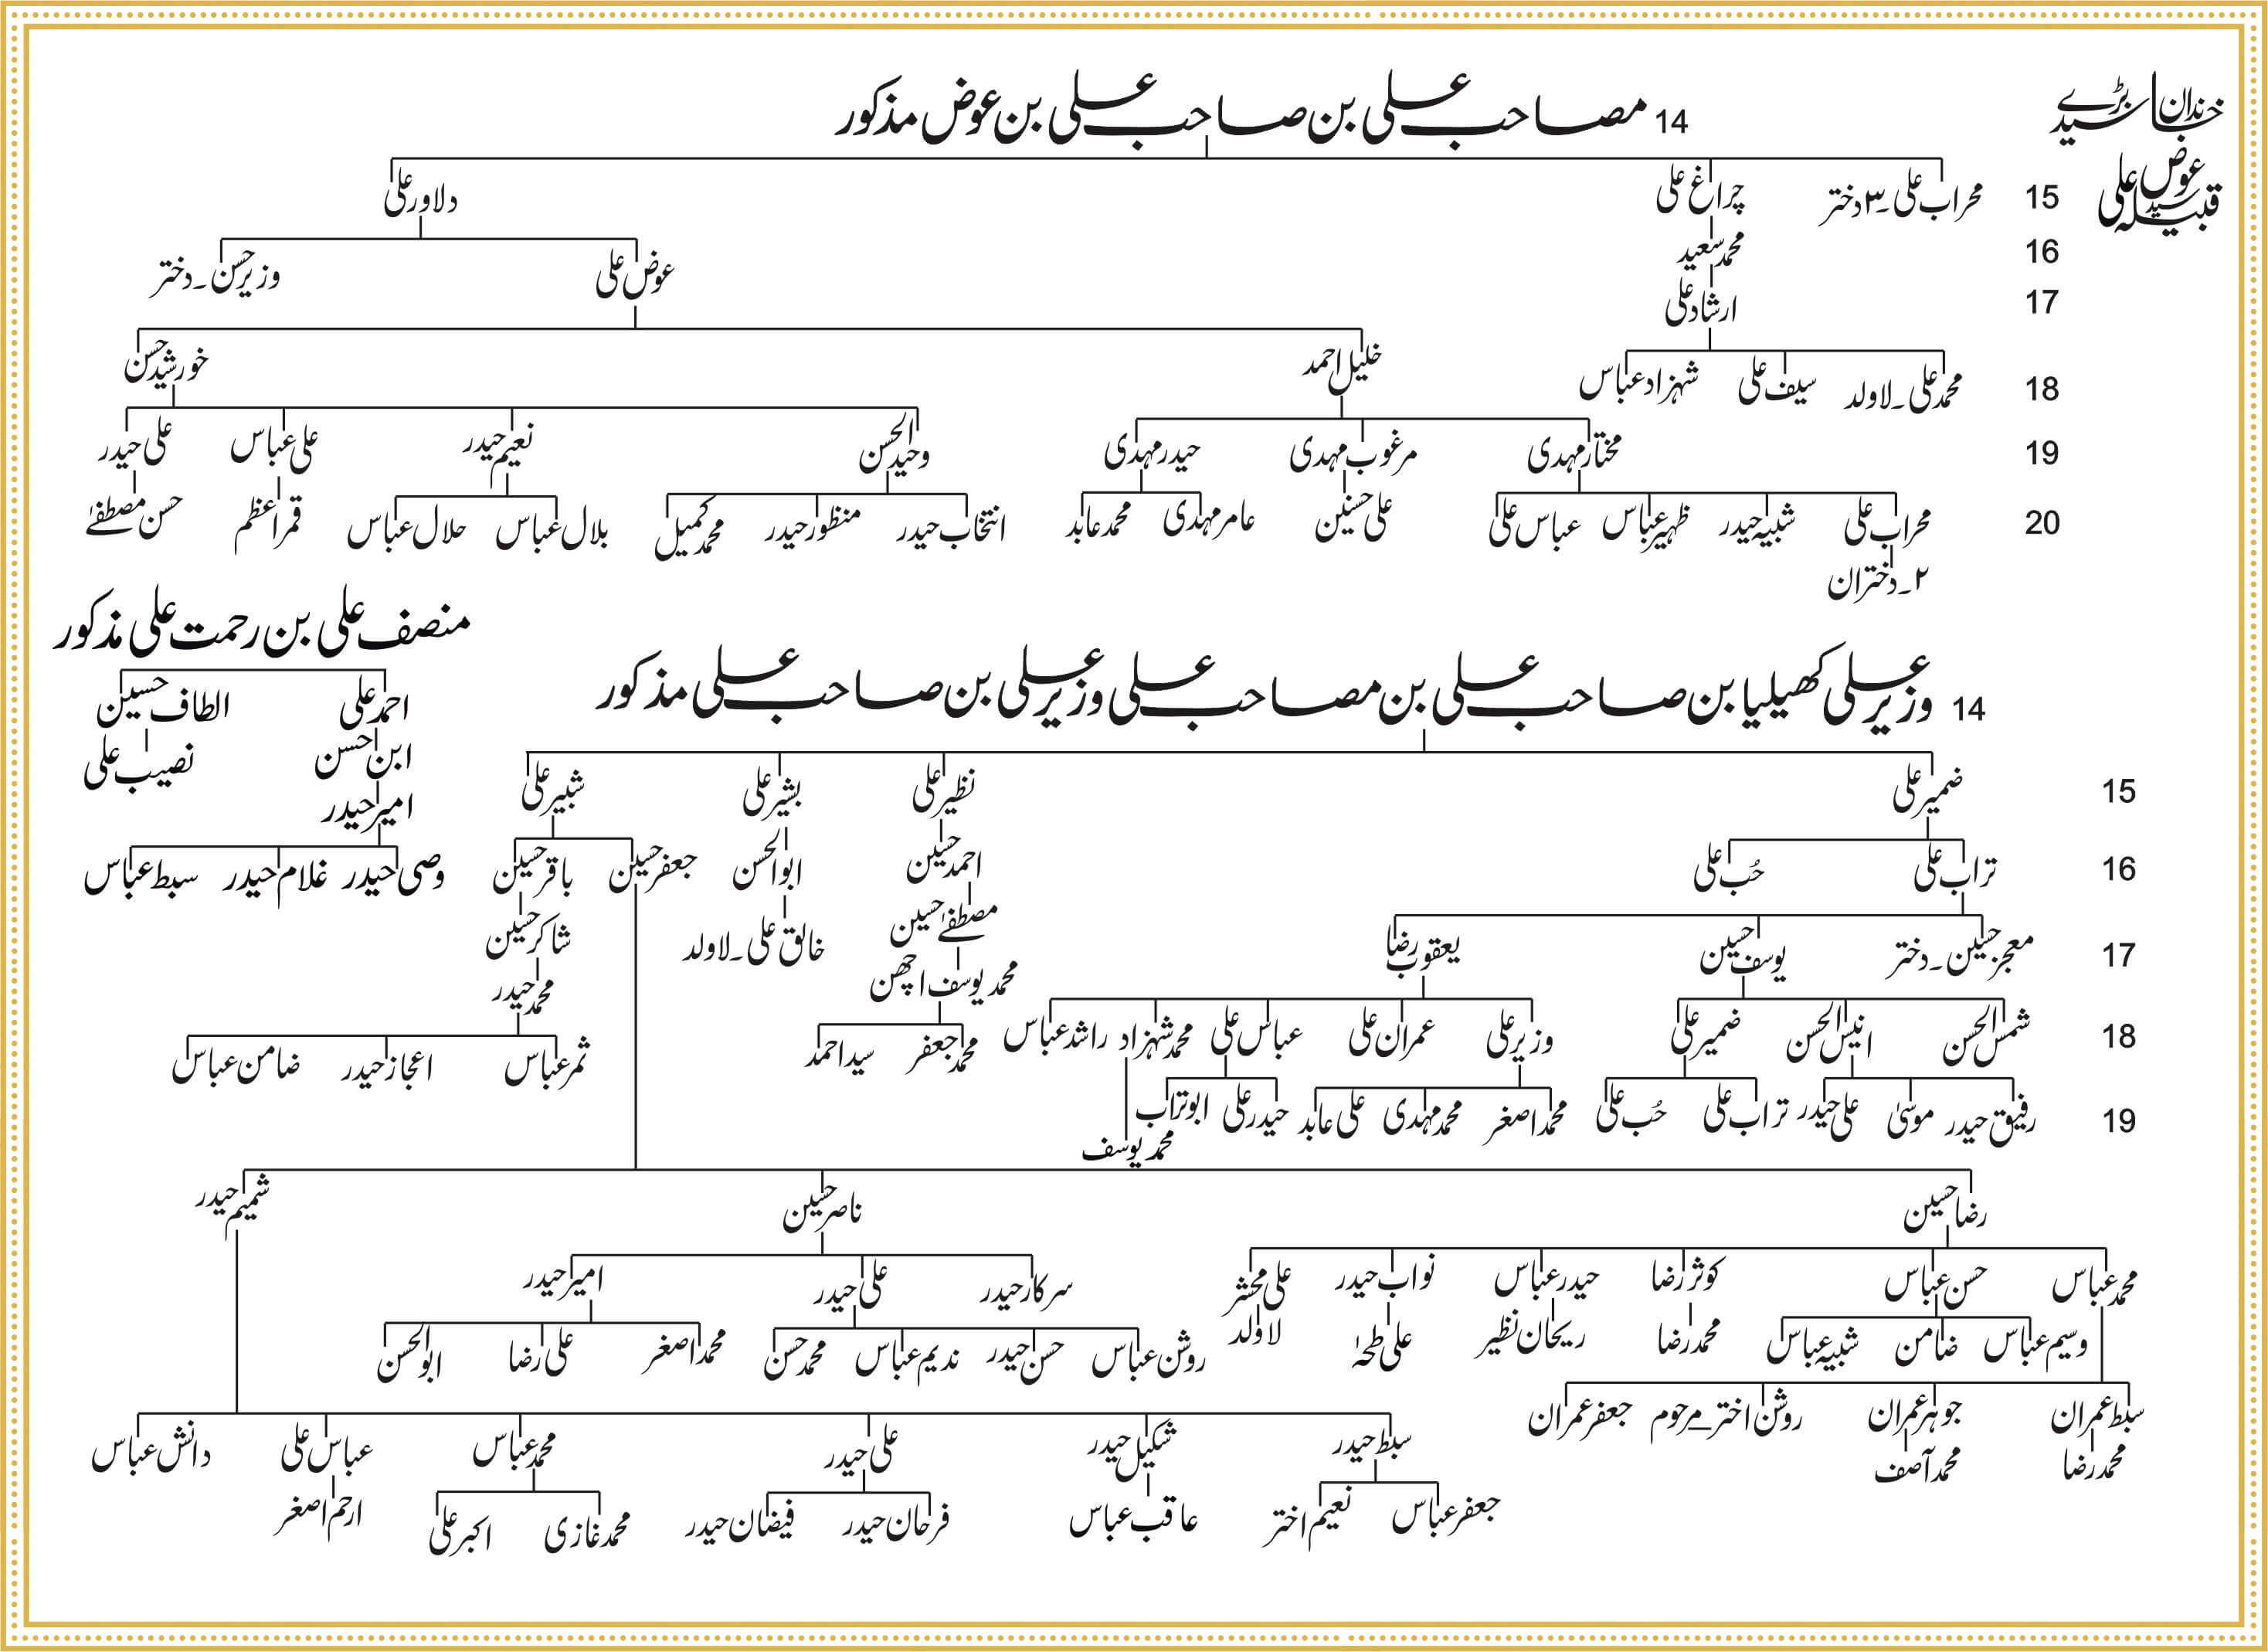 خاندان بڑے سید
قبیلہ سید عوض علی
14 مصاحب علی بن صاحب علی بن عوض مذکور
15 محراب علی۔۳ دختر چراغ علی دلاور علی
16 محمد سعید عوض علی وزیر حسن۔دختر
17 ارشاد علی
18 محمد علی۔لاولد سیف علی شہزاد عباس خلیل احمد خورشید حسن
19 مختار مہدی مرغوب مہدی حیدر مہدی وحید الحسن نعیم حیدر علی عباس علی حیدر
20 محراب علی شبیہ حیدر ظہیر عباس عباس علی علی حسنین عامر مہدی محمد عابد انتخاب حیدر منظور حیدر محمد کمیل بلال عباس حلال عباس قمر اعظم حسن مصطفےٰ
۲۔دختران
منصف علی بن رحمت علی مذکور
احمد علی الطاف حسین
ابن احسن نصیب علی
امیر حیدر
وصی حیدر غلام حیدر سبط عباس
14 وزیر علی کھیلیا بن صاحب علی بن مصاحب علی وزیر علی بن صاحب علی مذکور
15 ضمیر علی نظیر علی بشیر علی شبیر علی
16 تراب علی حُب علی احمد حسین ابوالحسن جعفر حسین باقر حسین
17 معجز حسین۔دختر یوسف حسین یعقوب رضا مصطفےٰ حسین خالق علی۔لاولد شاکر حسین
محمد یوسف اچھن محمد حیدر
18 شمس الحسن انیس الحسن ضمیر علی وزیر علی عمران علی عباس علی محمد شہزاد راشد عباس محمد جعفر سید احمد ثمر عباس اعجاز حیدر ضامن عباس
19 رفیق حیدر موسیٰ علی حیدر تراب علی حُب علی محمد اصغر محمد مہدی علی عابد حیدر علی ابوتراب
محمد یوسف
رضا حسین ناصر حسین شمیم حیدر
محمد عباس حسن عباس کوثر رضا حیدر عباس نواب حیدر علی محشر سرکار حیدر علی حیدر امیر حیدر
وسیم عباس ضامن شبیہ عباس محمد رضا ریحان نظیر علی طحہٰ لاولد روشن عباس حسن حیدر ندیم عباس محمد حسن محمد اصغر علی رضا ابوالحسن
سبط عمران جوہر عمران روشن اختر مرحوم جعفر عمران
محمد رضا محمد آصف
سبط حیدر شکیل حیدر علی حیدر محمد عباس عباس علی دانش عباس
جعفر عباس نعیم اختر عاقب عباس فرحان حیدر فیضان حیدر محمد غازی اکبر علی ارحم اصغر